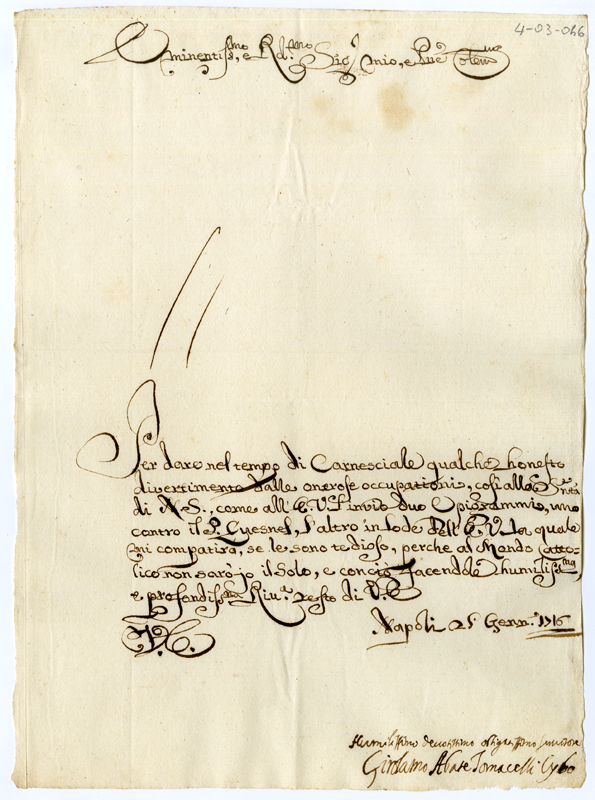 4-03-066
Eminentiss.mo, e R.d.mo Sig.r mio, e P.ne Col.mo
Per dare nel tempo di Carnesciale qualche honesto
divertimento dalle onerose occupationi, così alla S.tità
di N.S., come all'E.V. invio due Epigrammi, uno
contro il P. Quesnel, l'altro in lode dell'E.V. la quale
mi compatirà, se le sono tedioso, perche al Mondo Catto-
lico non sarò io il solo, e con ciò facendole humiliss.ma,
e profondiss.ma Riu.a resto di V.E.
Napoli 25 Genn.o 1716
V.E.
Humilissimo devotissimo obligatissimo servitore
Girolamo Abate Tomacelli Cybo